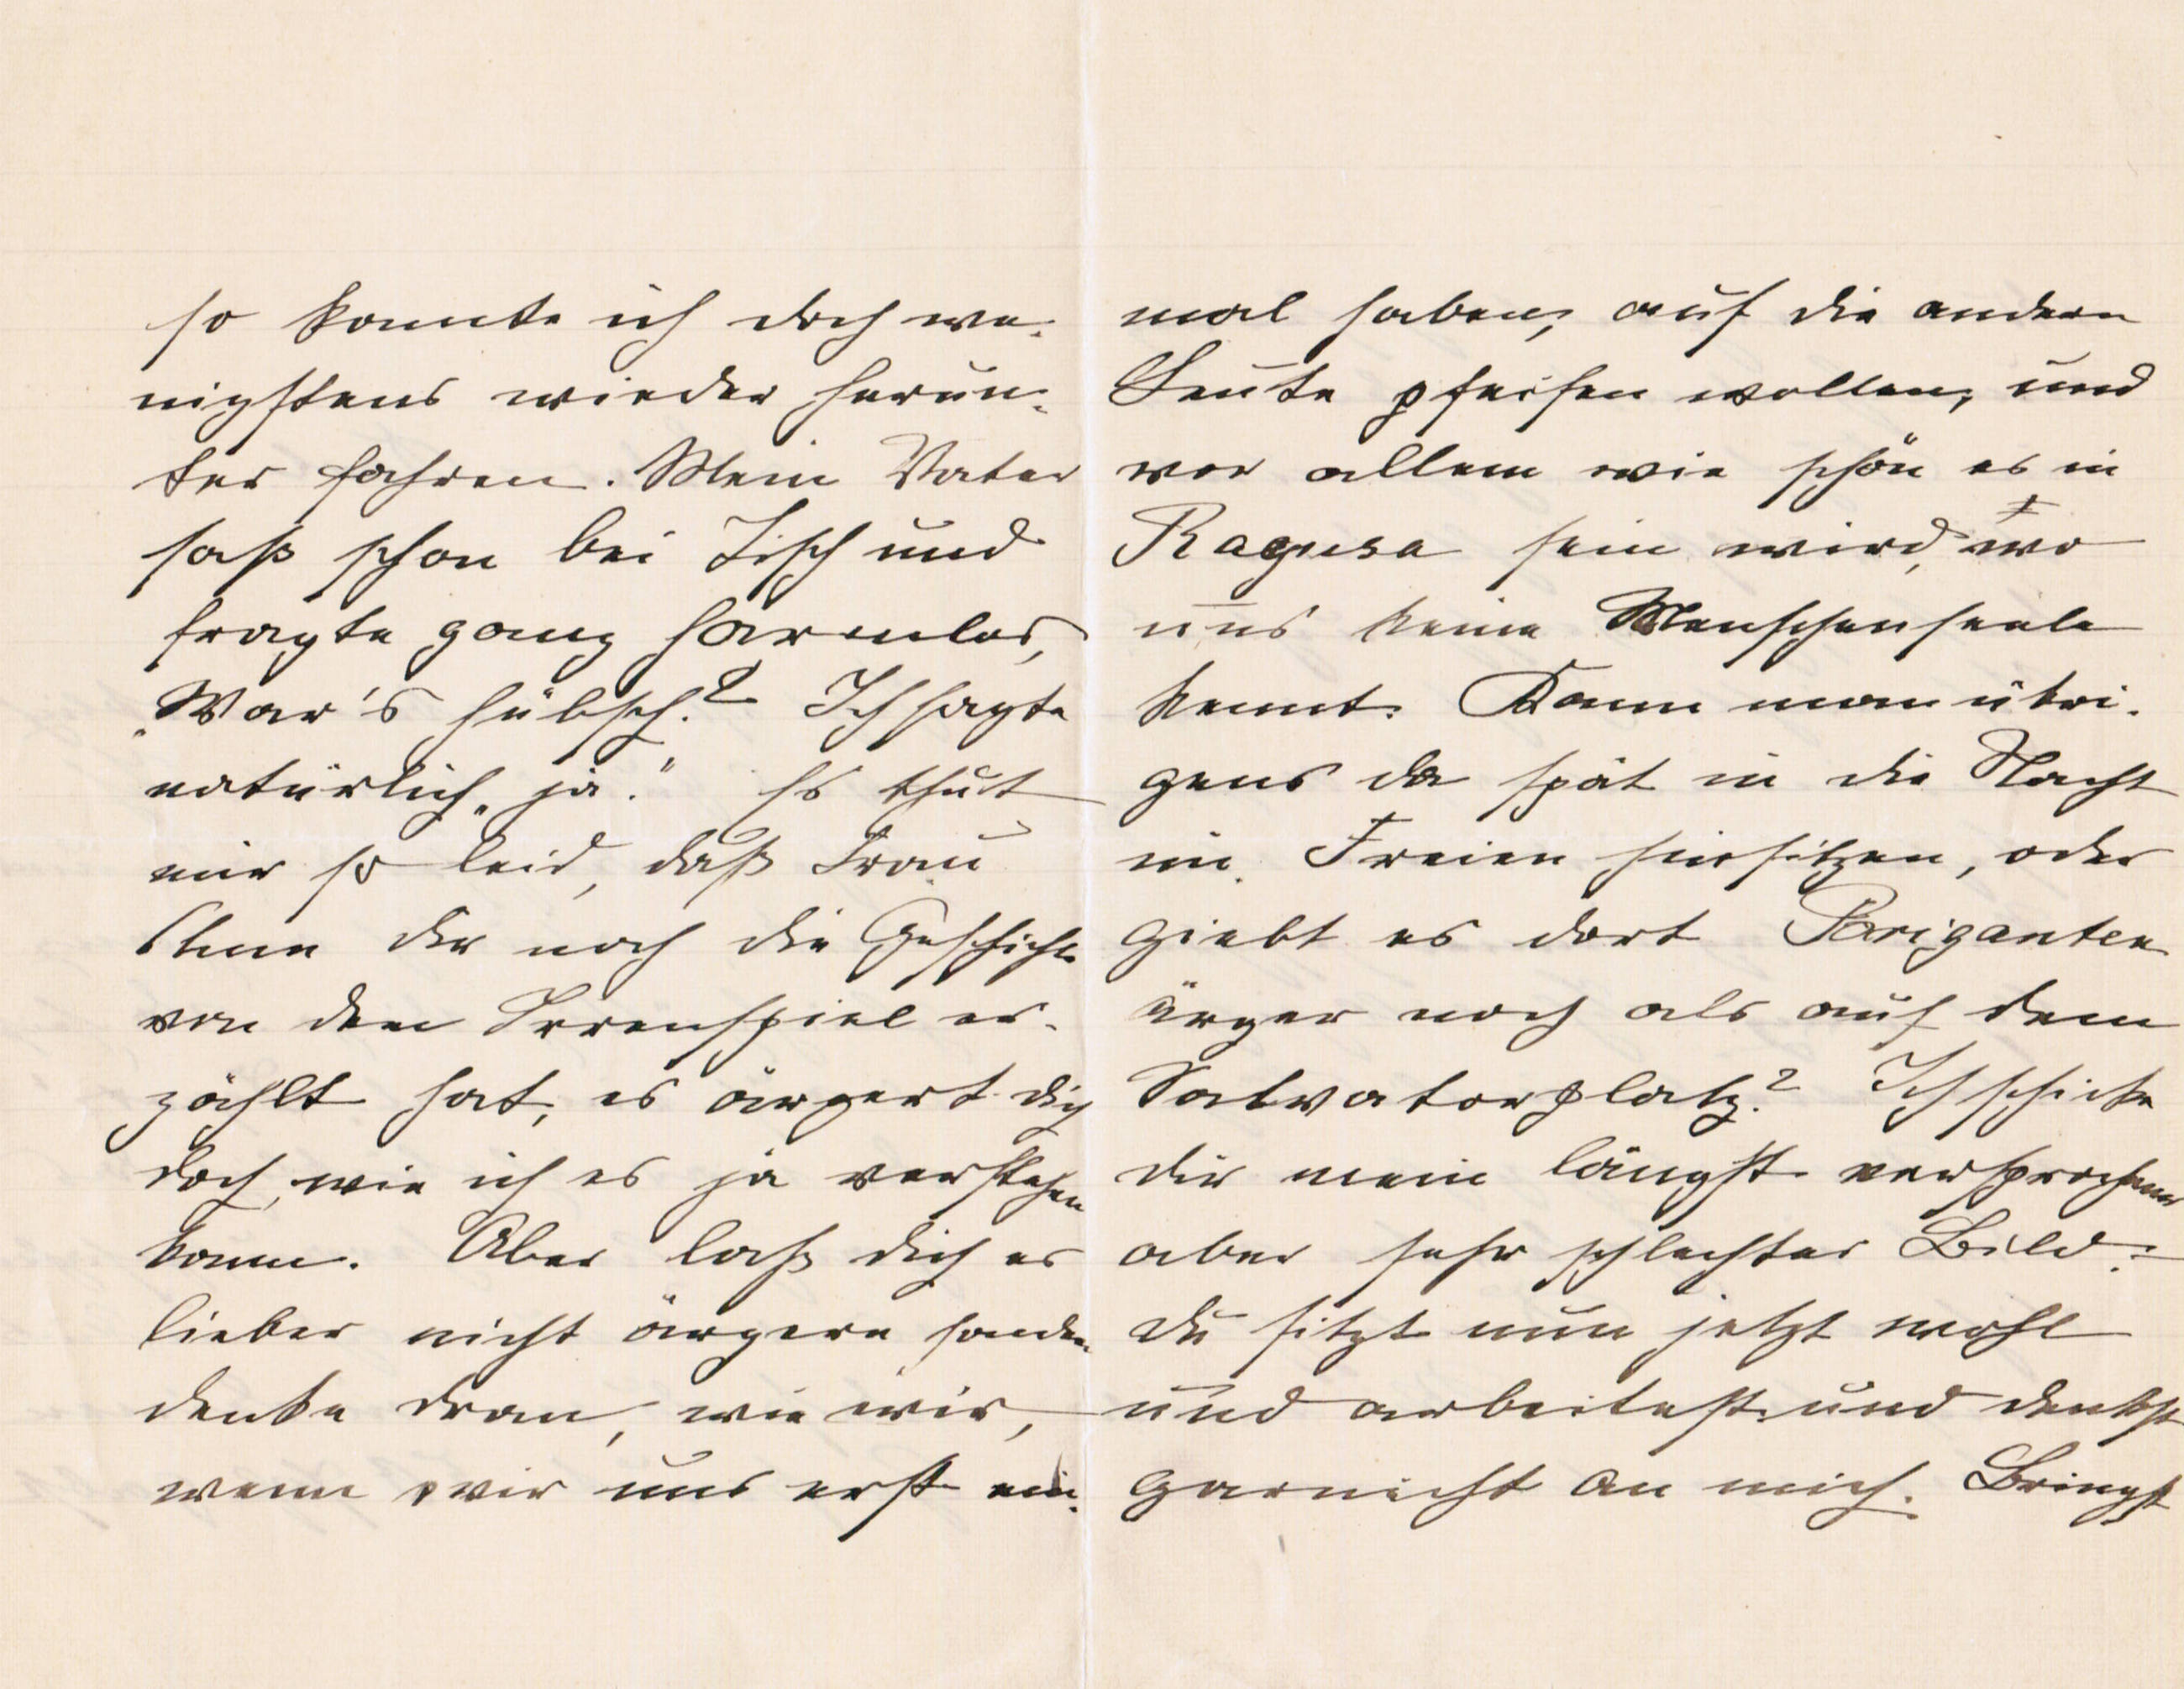 so konnte ich doch we-
nigstens wieder herun-
ter fahren. Mein Vater
saß schon bei Tisch und
fragte ganz harmlos,
„War's hübsch? Ich sagte
natürlich „ja." Es thut
mir so leid, daß Frau
dir noch die Geschichte
von dem Irrenspiel er-
zählt hat, es ärgert dich
doch, wie ich es ja verstehen
kann. Aber laß dich es
lieber nicht ärgern sondern
denke dran, wie wir,
wenn wir uns erst ein-
mal haben, auf die andern
Leute pfeifen wollen, und
vor allem wie schön es in
Ragusa sein wird, wo
uns keine Menschenseele
kennt. Kann man übri-
gens da spät in die Nacht
im Freien hinsitzen, oder
giebt es dort Briganten
ärger noch als auf dem
Salvatorplatz? Ich schicke
dir mein längst versprochenes
aber sehr schlechtes Bild.
Du sitzt nun jetzt wohl
und arbeitest und denkst
garnicht an mich. Bringst